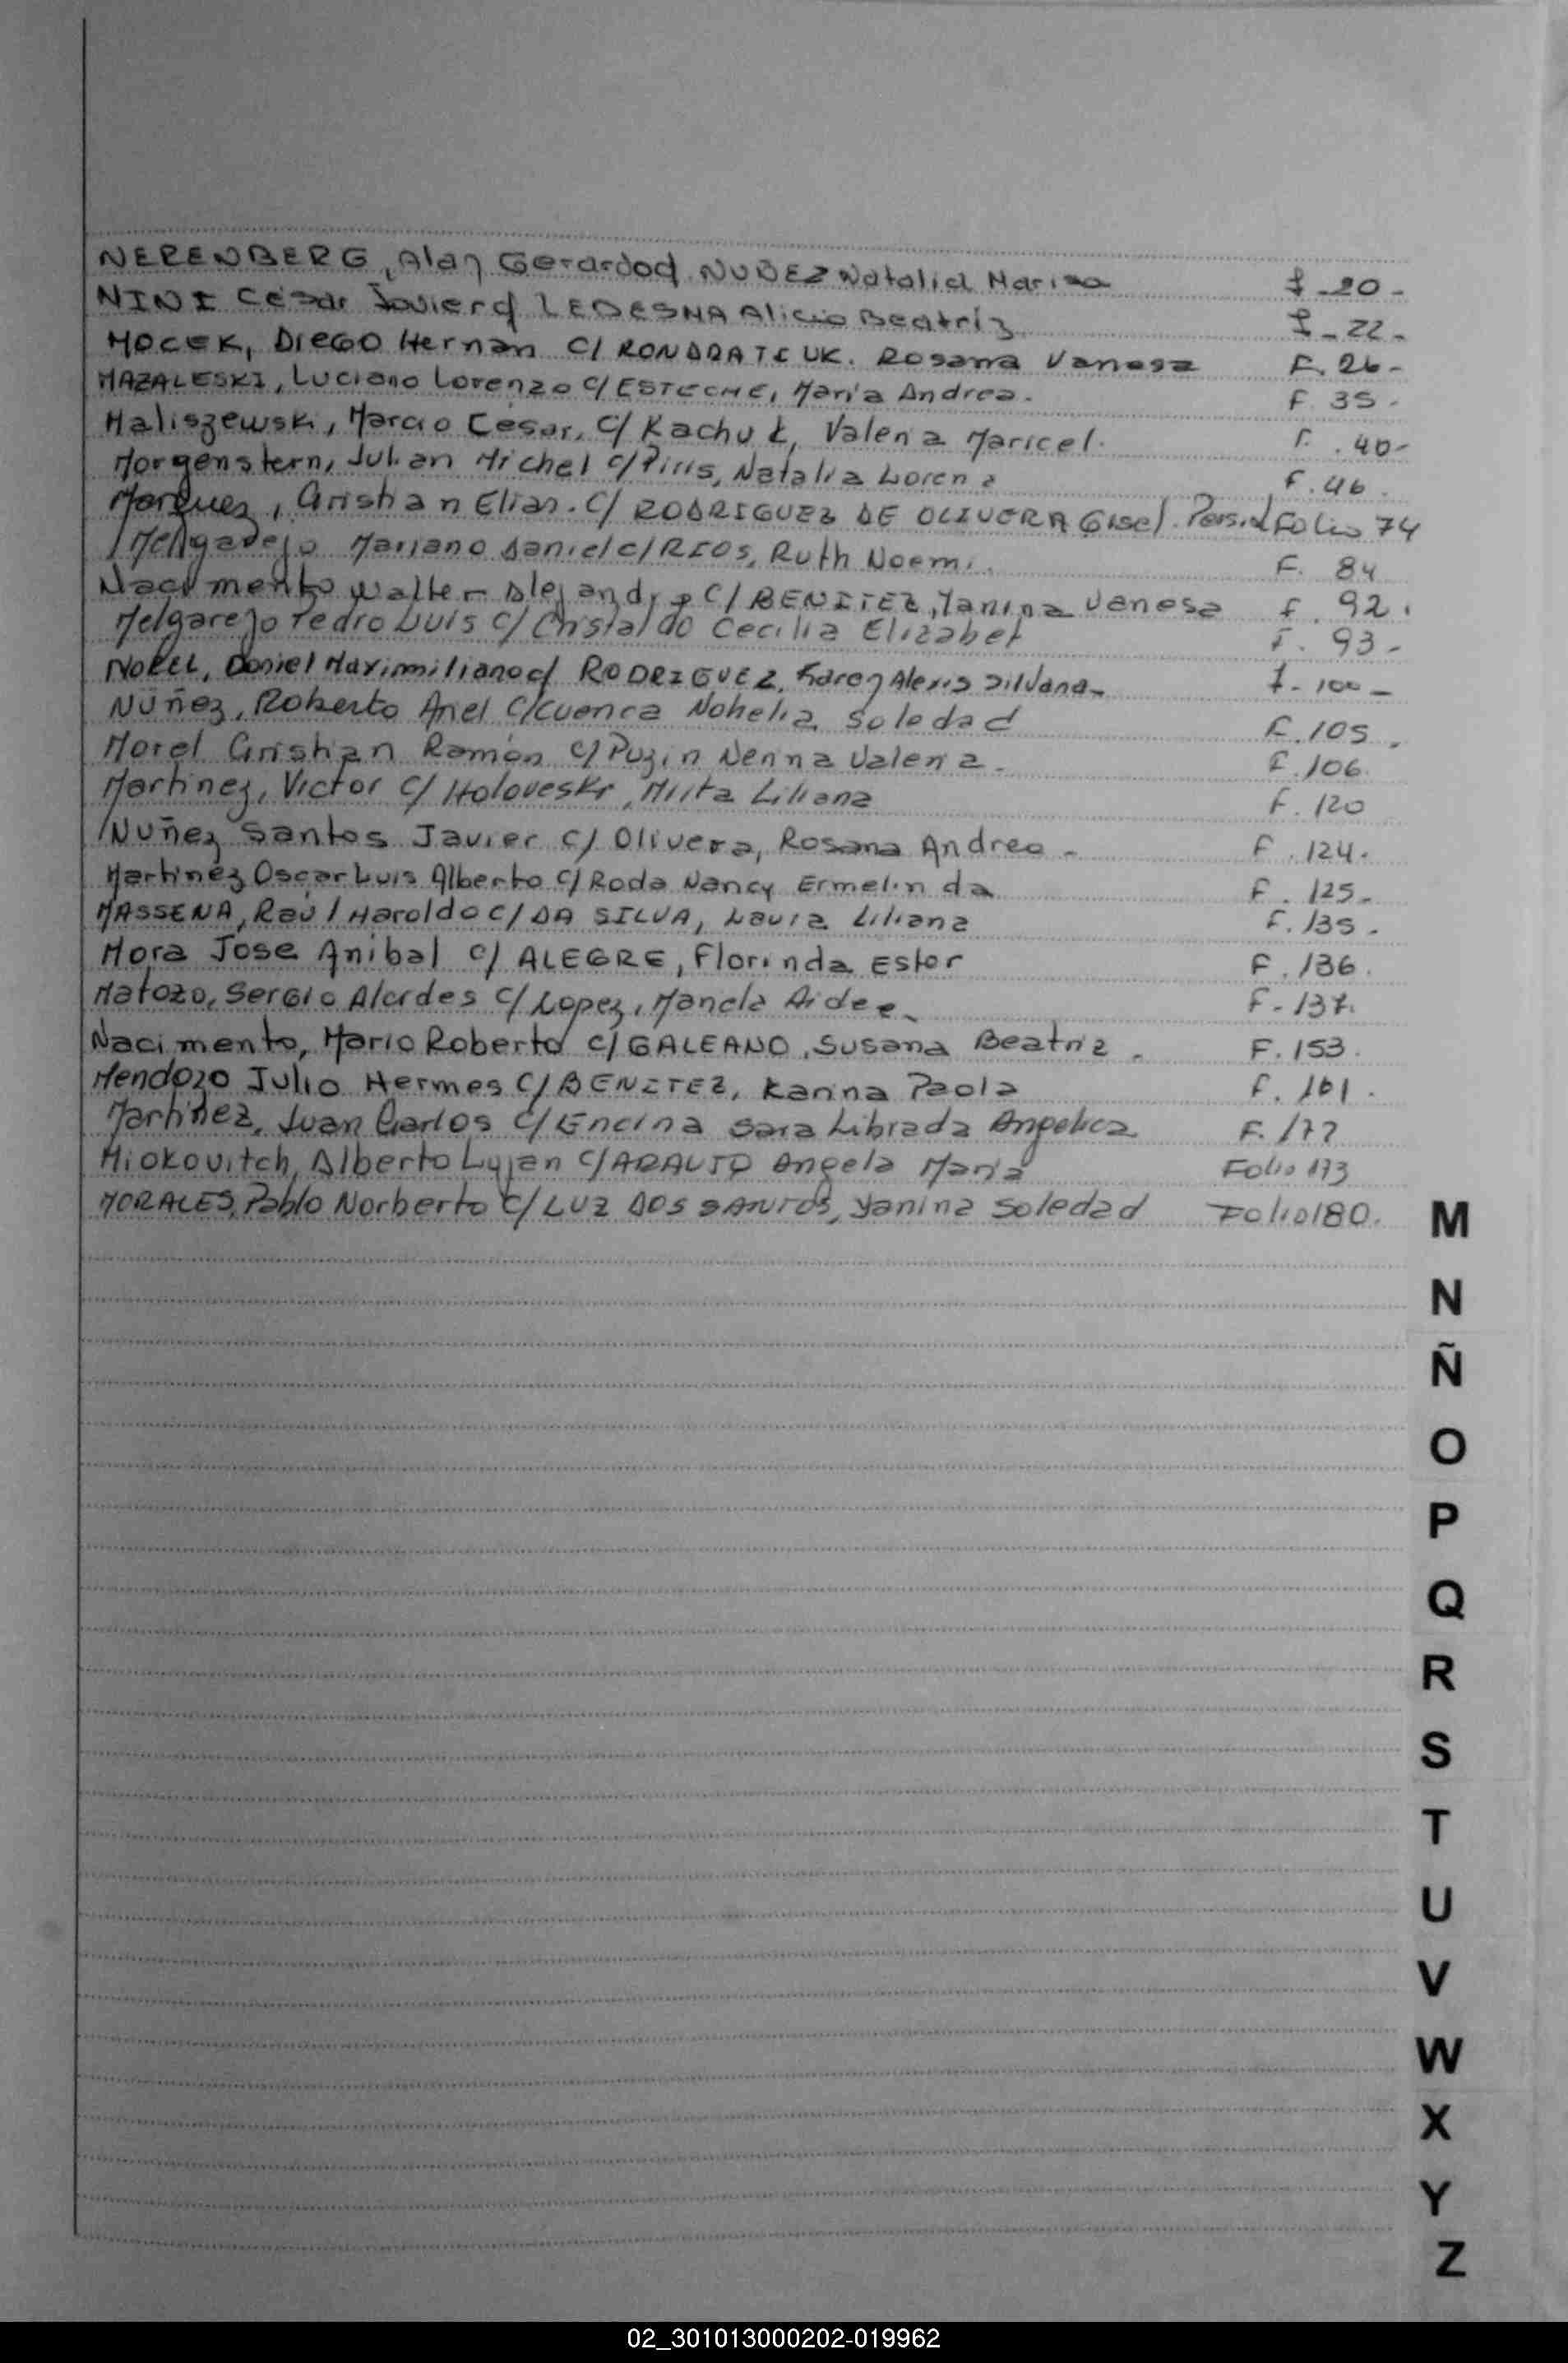 NERENBERG, Alan Gerardo c/ NUÑEZ Natalia Marisa F. 20-
NINI César Javier c/ LEDESMA Alicia Beatriz F- 22-
MOCEK, DIEGO Hernan C/ RONDRATIUK. Rosanna Vanesa F. 26-
MAZALESKI, Luciano Lorenzo C/ ESTECHE, María Andrea. F 35-
Maliszewski, Marcio César, C/ Kachuk, Valeria Maricel. F. 40-
Morgenstern, Julian Michel c/ Piris, Natalia Lorena F. 46.
Marquez, Cristhian Elias. C/ RODRIGUEZ DE OLIVERA Gisel. Folio 74
Melgarejo Mariano Daniel c/ RIOS, Ruth Noemi. F. 84
Nacimento Walter Alejandro C/ BENITEZ, Yanina Vanesa F. 92.
Melgarejo Pedro Luis C/ Cristaldo Cecilia Elizabet F. 93-
NOEL, Daniel Maximiliano c/ RODRIGUEZ, Karen Alexis Silvana- F- 100-
Núñez, Roberto Ariel C/ Cuenca Nohelia Soledad F. 105.
Morel Cristhian Ramón C/ Puzin Nerina Valeria. F. 106.
Martinez, Victor C/ Holoveski, Mirta Liliana F. 120
Nuñez Santos Javier C/ Olivera, Rosana Andrea - F. 124.
Martinez Oscar Luis Alberto C/ Roda Nancy Ermelinda F. 125.
MASSENA, Raúl Haroldo C/ DA SILVA, Laura Liliana F. 135.
Mora Jose Anibal C/ ALEGRE, Florinda Ester F. 136.
Matozo, Sergio Alcides C/ Lopez, Mariela Aidee. F- 137.
Nacimento, Mario Roberto C/ GALEANO, Susana Beatriz. F. 153.
Mendozo Julio Hermes C/ BENITEZ, Karina Paola F. 161.
Martinez, Juan Carlos C/ Encina Sara Librada Angelica F. 177
Miokovitch, Alberto Lujan C/ ARAUJO Angela Maria Folio 173
MORALES, Pablo Norberto C/ LUZ DOS SANTOS, Yanina Soledad Folio 180.
M
N
Ñ
O
P
Q
R
S
T
U
V
W
X
Y
Z
02_301013000202-019962